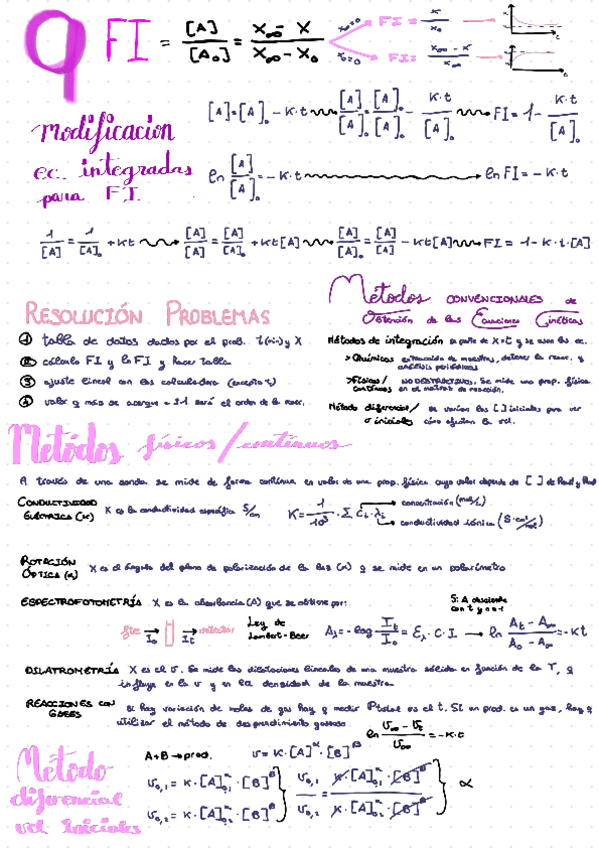 9 FI = [A]/[A₀] = (X∞ - X)/(X∞ - X₀)
X∞=0 FI = X/X₀
X₀=0 FI = (X∞ - X)/X∞
Modificacion
ec. integradas
para F.I.
[A]=[A]₀ - K·t [A]/[A]₀ = [A]₀/[A]₀ - K·t/[A]₀ FI = 1 - K·t/[A]₀
ln [A]/[A]₀ = - K·t ln FI = - K·t
1/[A] = 1/[A]₀ + Kt [A]/[A] = [A]/[A]₀ + Kt[A] [A]/[A]₀ = [A]/[A] - Kt[A] FI = 1 - K·t·[A]
RESOLUCIÓN PROBLEMAS
① tabla de datos dados por el prob. t(min) y X
② cálculo FI y ln FI y hacer tabla
③ ajuste lineal con las calculadora (excepto t)
④ valor q más se acerque a ±1 será el orden de la reacc.
Métodos CONVENCIONALES de
Obtención de las Ecuaciones Cinéticas
Métodos de integración se parte de X=t y se usan las ec.
> Químicos extracción de muestras, detener la reacc. y
análisis periódicos
> Físicos/ NO DESTRUCTIVOS. Se mide una prop. física
continuos en el matraz de reacción.
Método diferencial/ se varían las [ ] iniciales para ver
v iniciales cómo afectan la vel.
Metódos físicos/continuos
A través de una sonda se mide de forma continua en valor de una prop. física cuyo valor depende de [ ] de
CONDUCTIVIDAD X es la conductividad específica S/cm K = 1/10³ · Σ Cᵢ·λᵢ concentración (mol/L)
ELÉCTRICA (K) conductividad iónica (S·cm²/mol)
ROTACIÓN X es el ángulo del plano de polarización de la luz (α) q se mide en un polarímetro
ÓPTICA (α)
ESPECTROFOTOMETRÍA X es la absorbancia (A) que se obtiene por:
Si A desciende
con t y
fte I₀ Iₜ detector Ley de Lambert-Beer Aλ = - log Iₜ/I₀ = ελ · C · l ln (Aₜ - A∞)/(A₀ - A∞) = - Kt
DILATROMETRÍA X es el v. Se mide las dilataciones lineales de una muestra sólida en función de la T, q
influye en la v y en la densidad de la muestra
REACCIONES CON Si hay variación de moles de gas hay q medir Ptotal vs el t. Si un prod. es un gas, hay q
GASES utilizar el método de desprendimiento gaseoso ln (v∞ - vₜ)/v∞ = - K·t
Método
diferencial
vel iniciales
A+B → prod. v = K·[A]^α·[B]^β
v₀,₁ = K·[A]^α₀,₁·[B]^β₀
v₀,₂ = K·[A]^α₀,₂·[B]^β₀
v₀,₁/v₀,₂ = K·[A]^α₀,₁·[B]^β₀ / K·[A]^α₀,₂·[B]^β₀ α